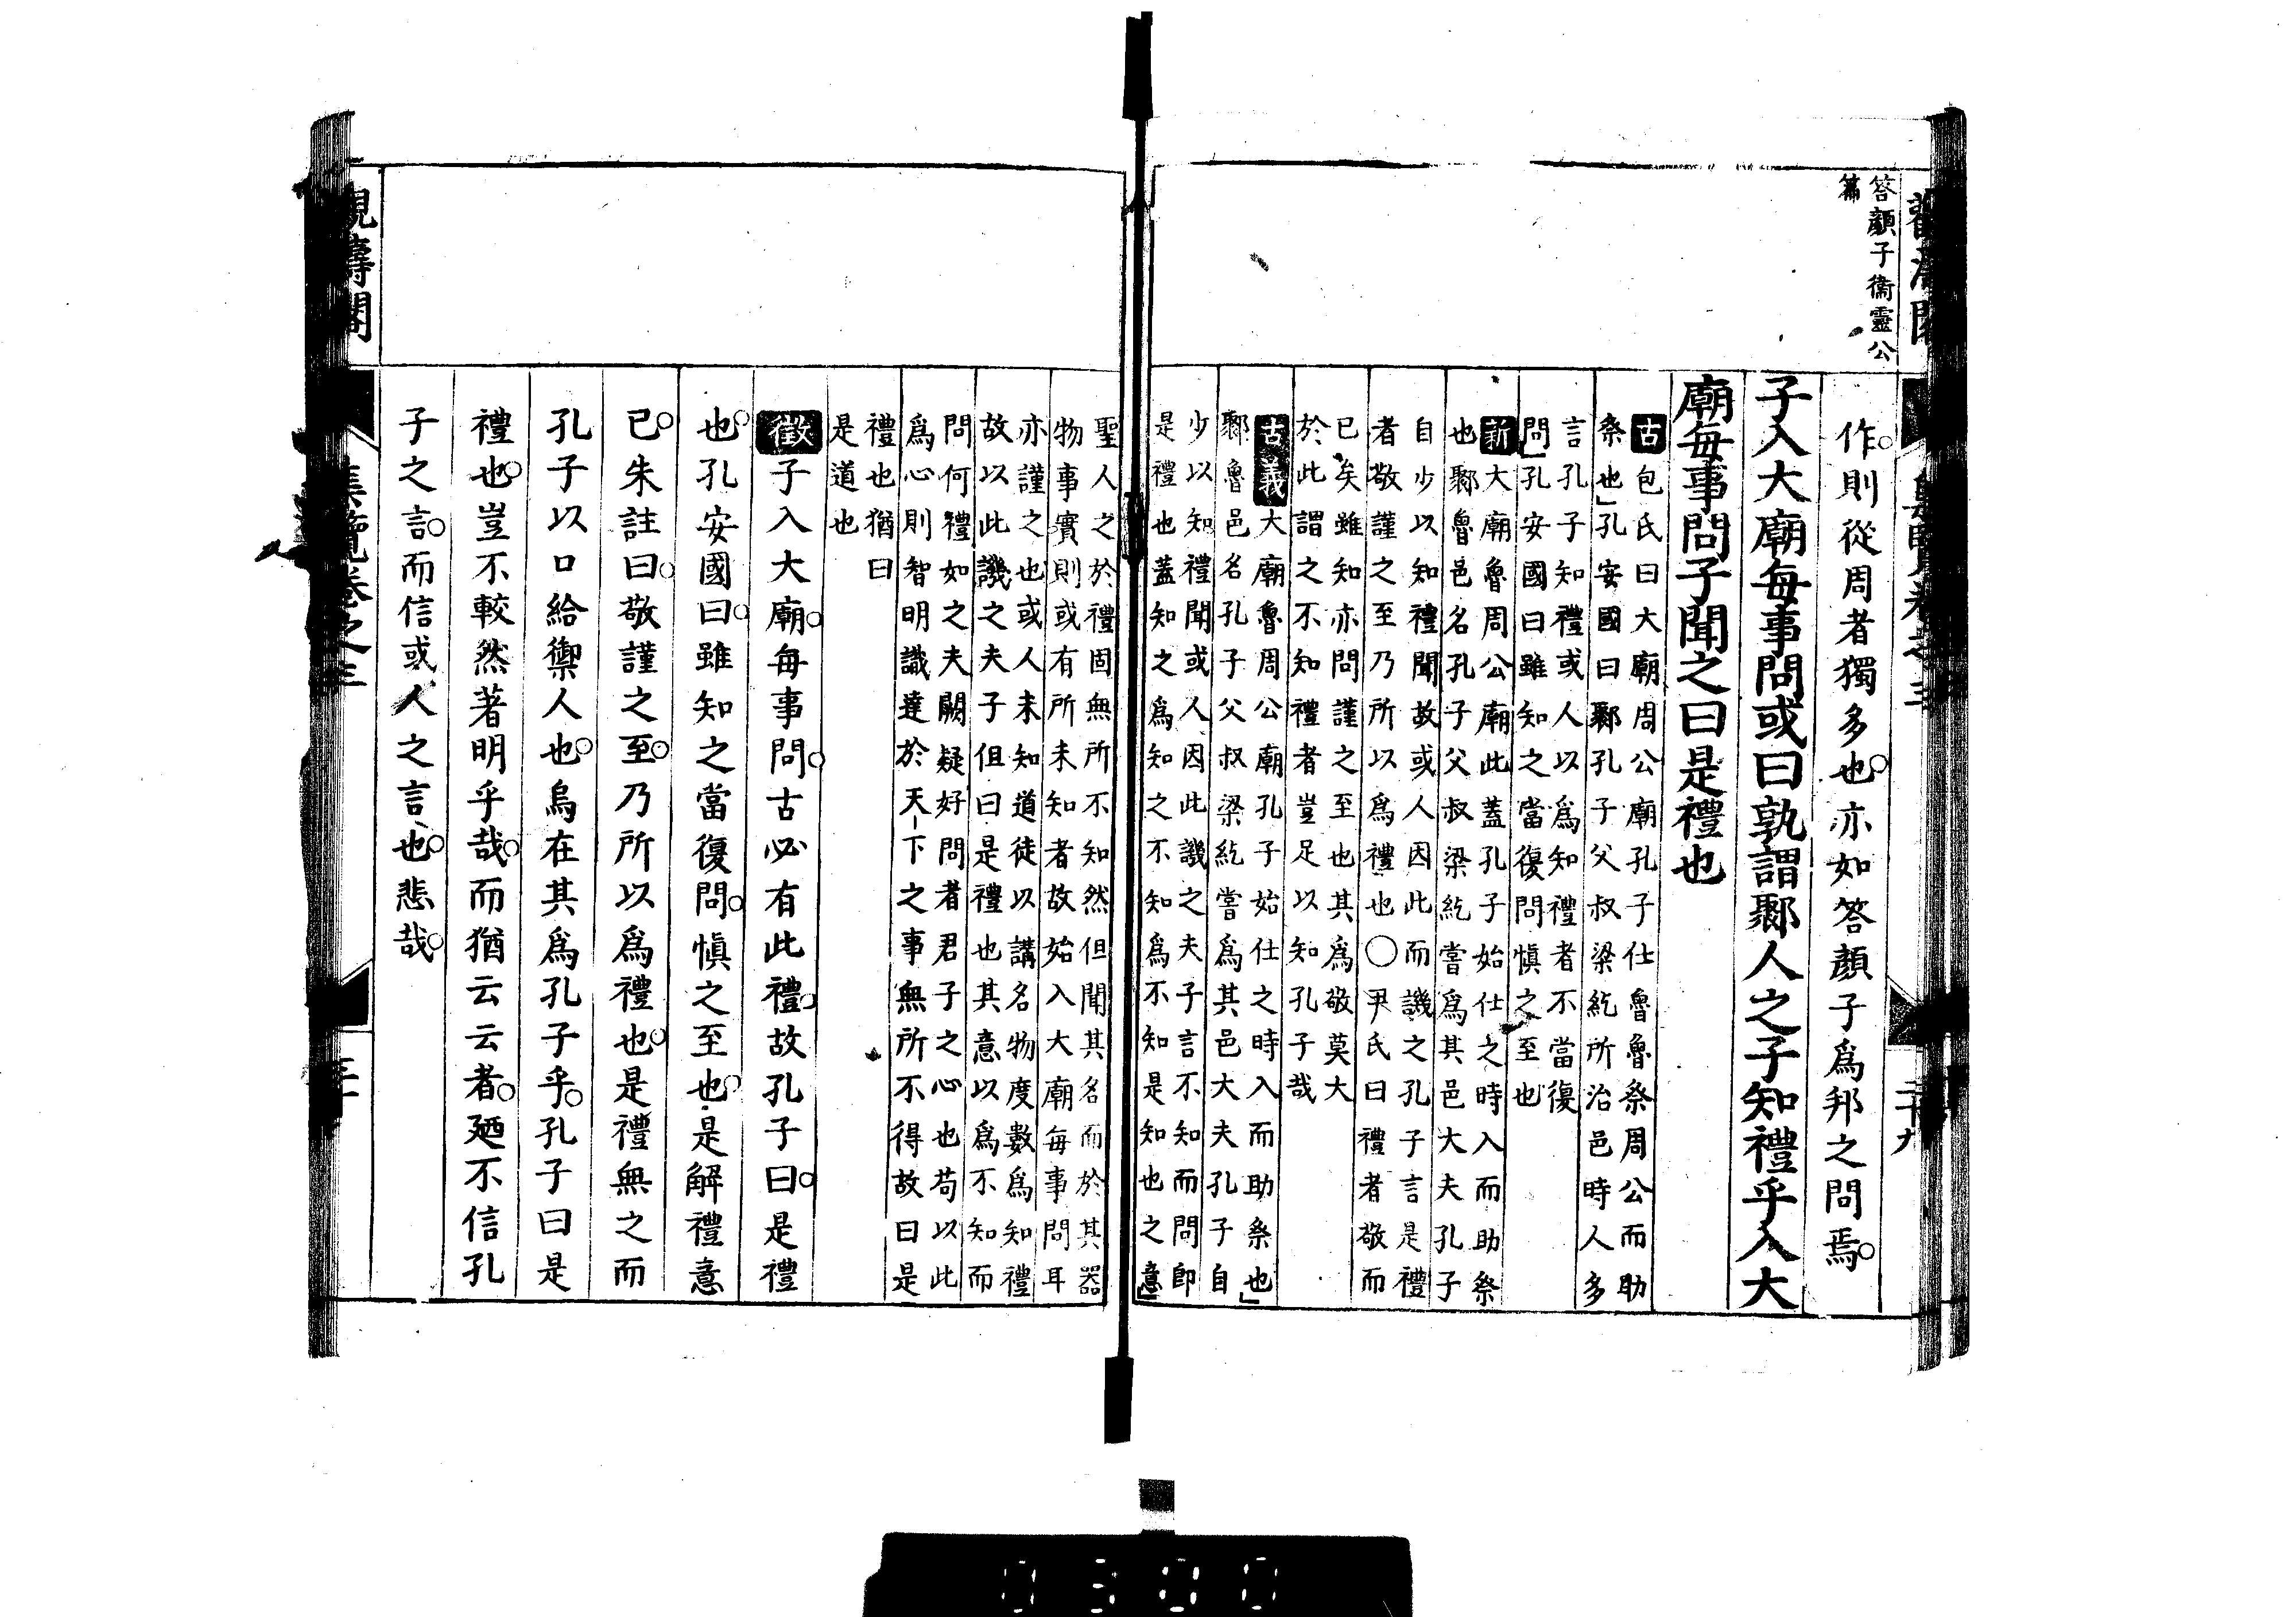 答顏子衞靈公
篇
作則從周者獨多也亦如答顏子爲邦之問焉
子入大廟每事問或曰孰謂鄹人之子知禮乎入大
廟每事問子聞之曰是禮也
古包氏曰大廟周公廟孔子仕魯魯祭周公而助
祭也孔安國曰鄹孔子父叔梁紇所治邑時人多
言孔子知禮或人以爲知禮者不當復
問孔安國曰雖知之當復問愼之至也
新大廟魯周公廟此蓋孔子始仕之時入而助祭
也鄹魯邑名孔子父叔梁紇嘗爲其邑大夫孔子
自少以知禮聞故或人因此而譏之孔子言是禮
者敬謹之至乃所以爲禮也○尹氏曰禮者敬而
已矣雖知亦問謹之至也其爲敬莫大
於此謂之不知禮者豈足以知孔子哉
古義大廟魯周公廟孔子始仕之時入而助祭也
鄹魯邑名孔子父叔梁紇嘗爲其邑大夫孔子自
少以知禮聞或人因此譏之夫子言不知而問卽
是禮也蓋知之爲知之不知爲不知是知也之意
聖人之於禮固無所不知然但聞其名而於其器
物事實則或有所未知者故始入大廟每事問耳
亦謹之也或人未知道徒以講名物度數爲知禮
故以此譏之夫子但曰是禮也其意以爲不知而
問何禮如之夫闕疑好問者君子之心也苟以此
爲心則智明識達於天下之事無所不得故曰是
禮也猶曰
是道也
徵子入大廟每事問古必有此禮故孔子曰是禮
也孔安國曰雖知之當復問愼之至也是解禮意
已朱註曰敬謹之至乃所以爲禮也是禮無之而
孔子以口給禦人也烏在其爲孔子乎孔子曰是
禮也豈不較然著明乎哉而猶云云者廼不信孔
子之言而信或人之言也悲哉
集覽卷之三